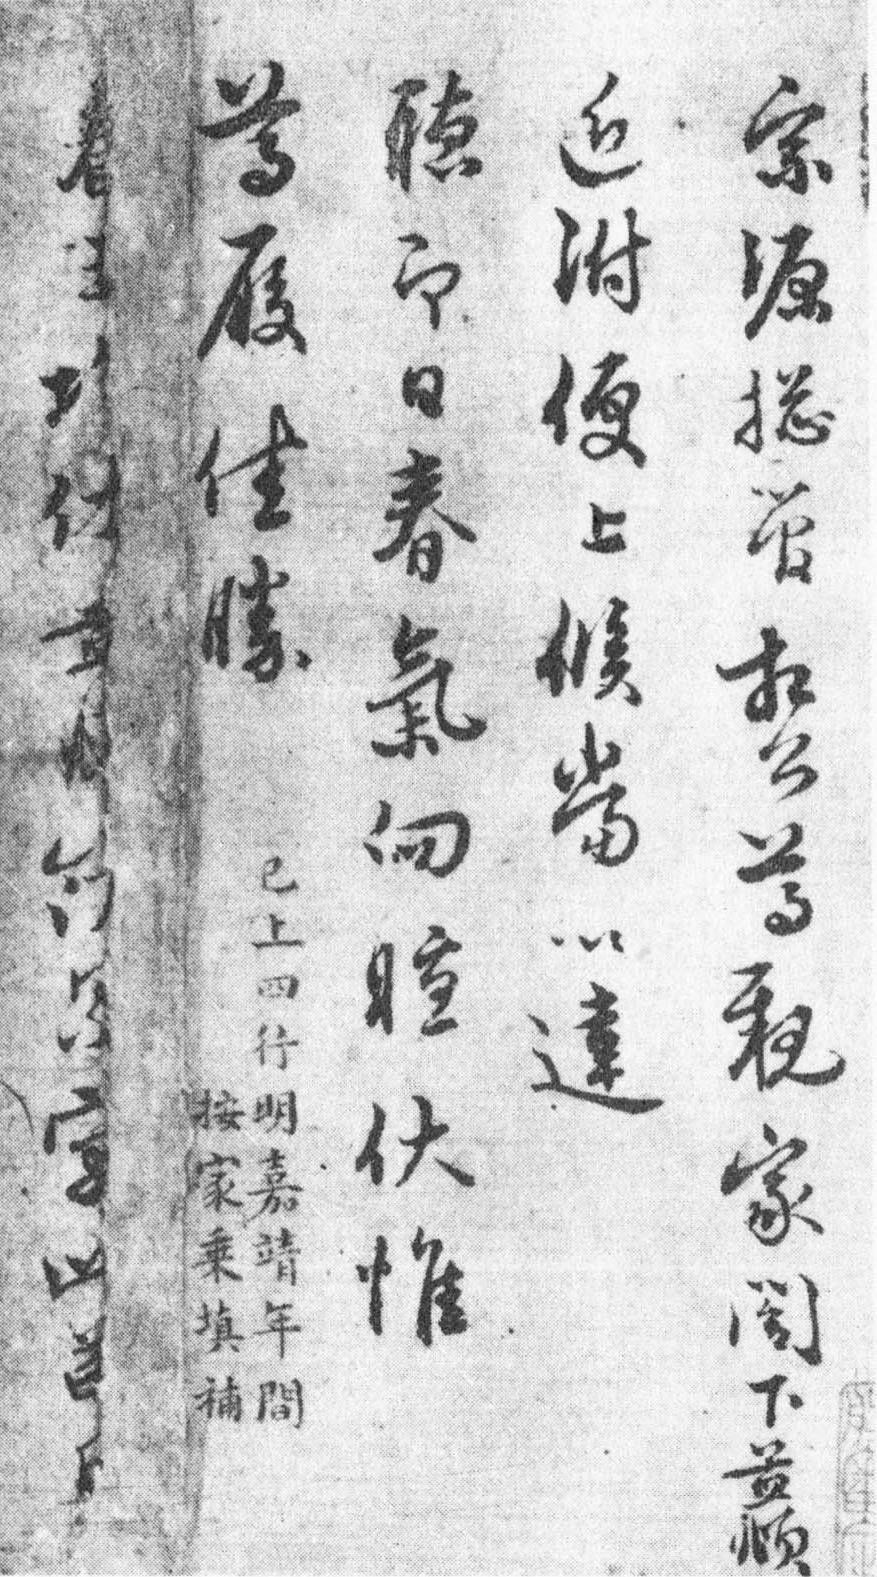 宗源捴管相公尊親家閣下孟頫
近附便上候當以達
聽即日春氣向暄伏惟
尊履佳勝
已上四行明嘉靖年間
按家乘填補